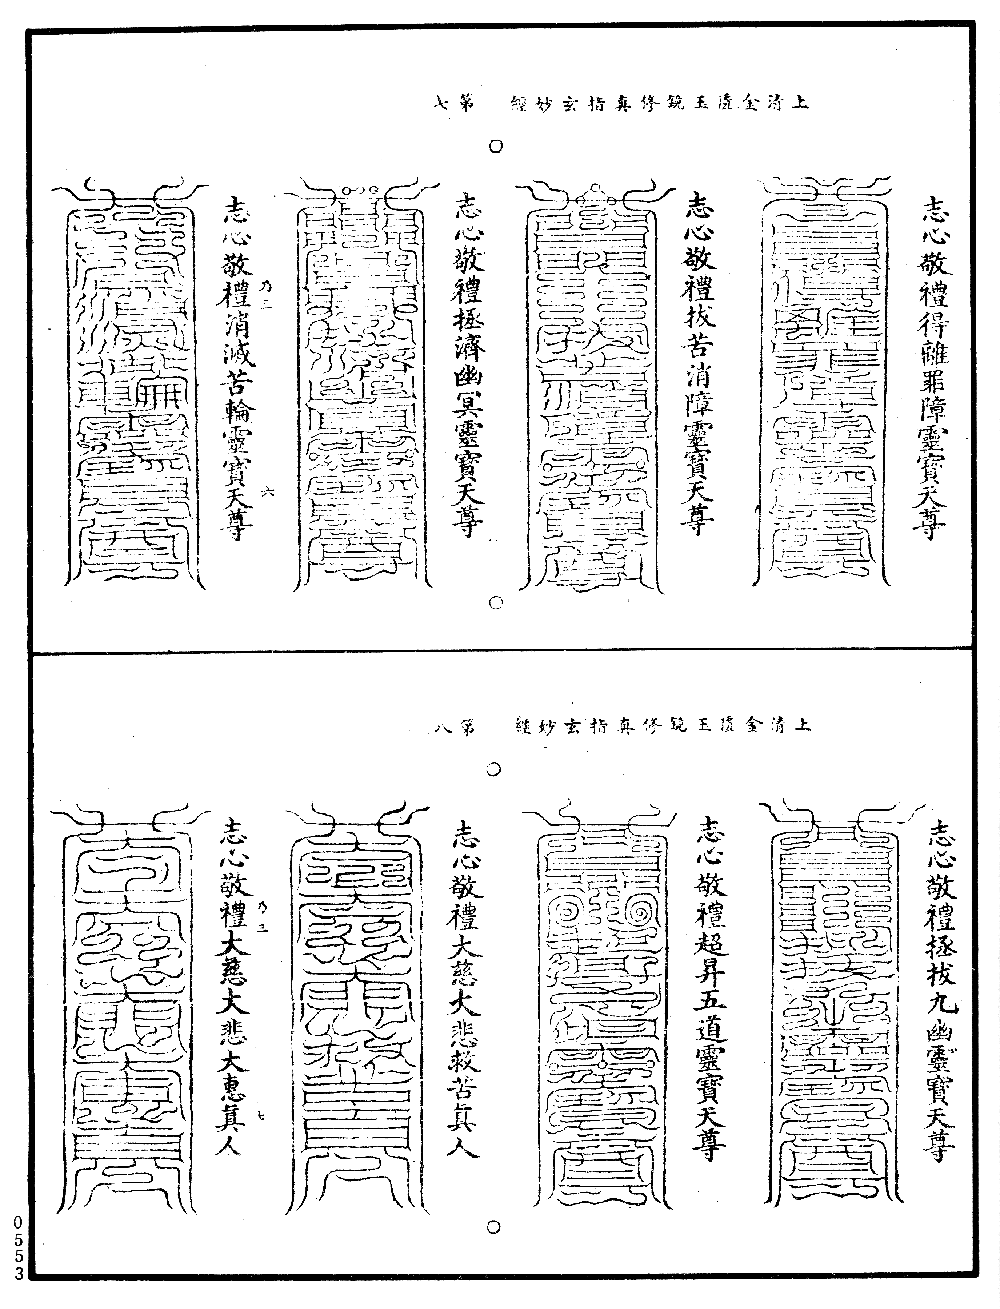 上清金匱玉鏡修真指玄妙經 第七
志心敬禮得離罪障靈寶天尊
志心敬禮拔苦消障靈寶天尊
志心敬禮拯濟幽冥靈寶天尊
志心敬禮消滅苦輪靈寶天尊
乃二 六
上清金匱玉鏡修真指玄妙經 第八
志心敬禮拯拔九幽靈寶天尊
志心敬禮超昇五道靈寶天尊
志心敬禮大慈大悲救苦真人
志心敬禮大慈大悲大惠真人
乃三 七
0553